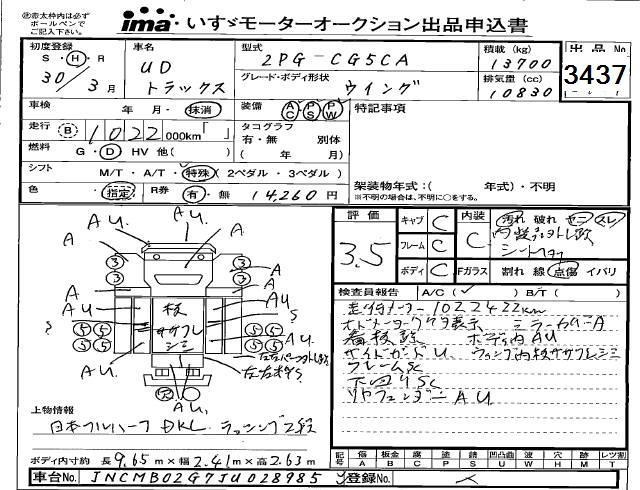 ※赤太枠内は必ず
ボールペンで
ご記入下さい。
ima いすゞモーターオークション出品申込書
初度登録 S・H・R 30/3月
車名 UD トラックス
型式 2PG-CG5CA
グレード・ボディ形状 ウイング
積載(kg) 13700
排気量(cc) 10830
出品No 3437
車検 年・月・抹消
装備 AC PS PW
特記事項
走行 B 1022 000km「 」
タコグラフ 有・無 別体
( 年 月)
燃料 G・D HV 他( )
シフト M/T・A/T・特殊(2ペダル・3ペダル)
色 ・指定・
R券 有・無 14,260円
架装物年式:( 年式)・不明
※不明の場合は、不明に○をする。
評価 3.5
キャブ C
フレーム C
ボディ C
内装 C
汚れ 破れ コゲ スレ
シート
Fガラス 割れ 線 点傷 イバリ
検査員報告 A/C( ) B/T( )
走行メーター 1022422km
看板跡 ボディ内AU
サイドガードU ウィング内板ササクレシミ
フレームSC
下回りSC
リヤフェンダーAU
AU
A
AU.
A
A
A
3
3
3
3
A
A
AU
AU
板
ササクレ
シミ
S
S
5 5
5 5
5 5
5 5
AU
AU.
AU,
左右ホデS
上物情報
日本フルハーフ DKL ラッシング2段
ボディ内寸約 長9.65m×幅2.41m×高2.63m
記号 傷A 板金B 腐C 塗P 錆S 凹凸曲U 補修W 穴H 外M 欠K 汗T レツ割
車台No. JNCMB02G7JU028985
登録No.